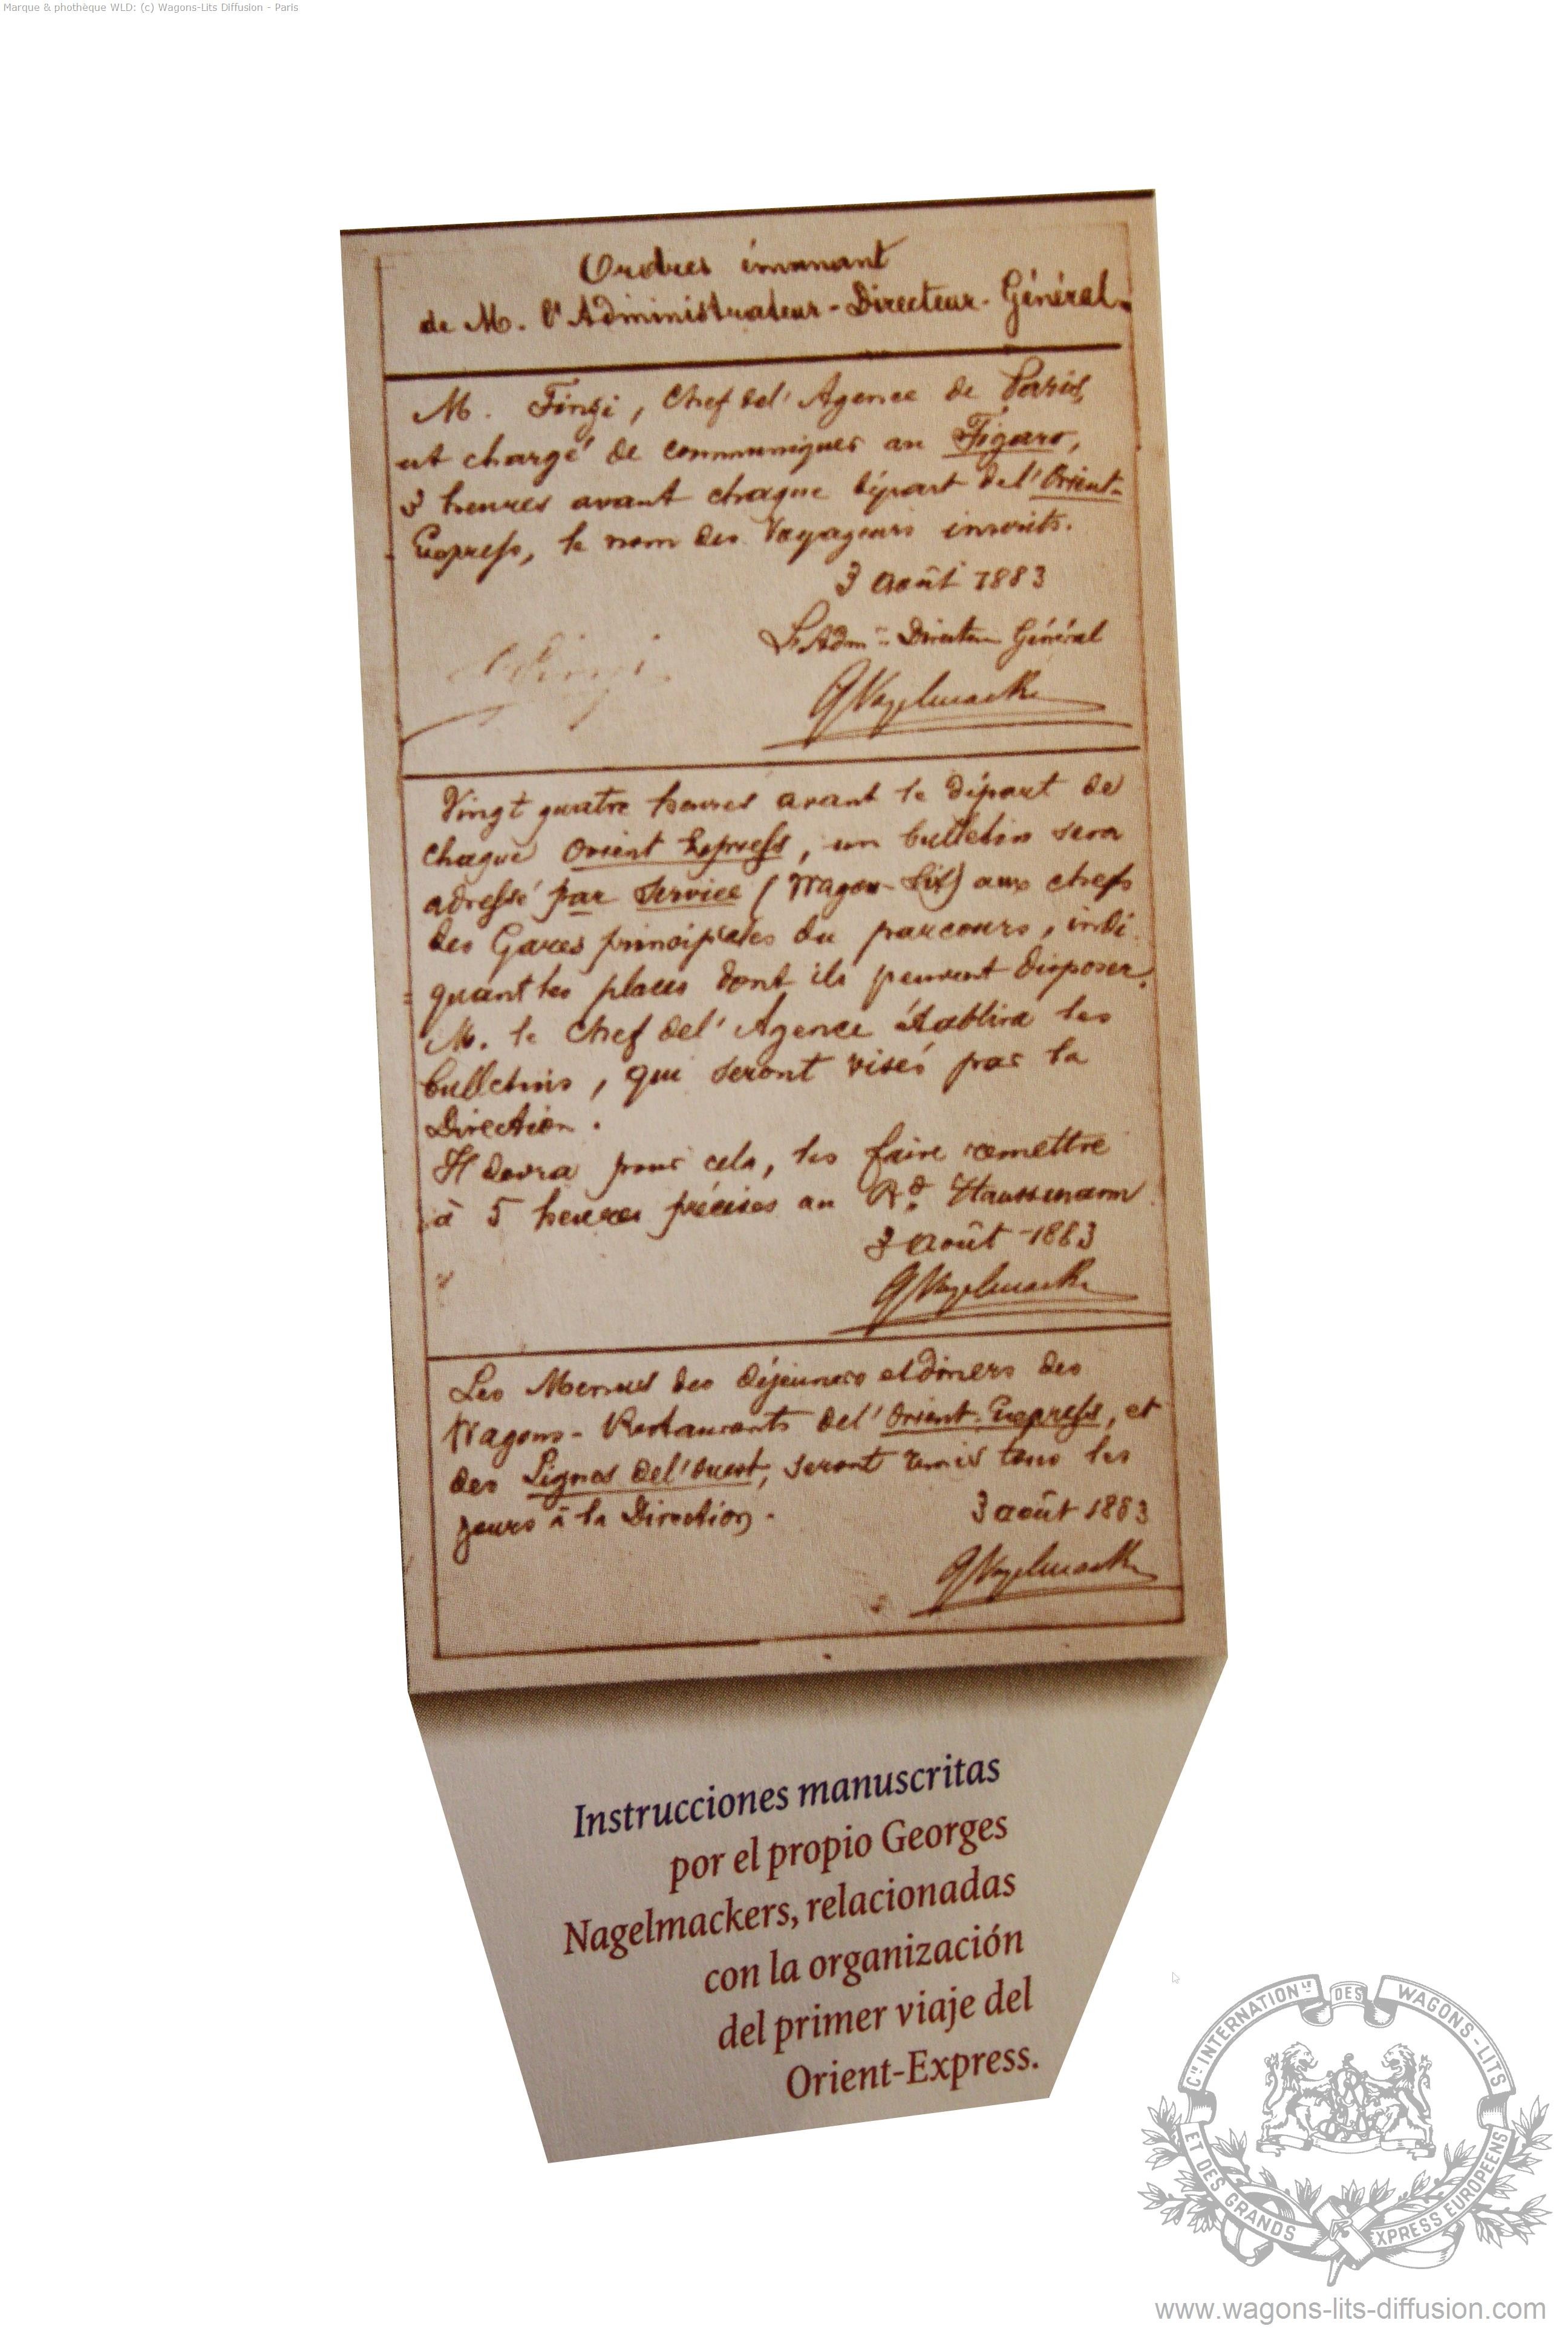 Marque & phothèque WLD: (c) Wagons-Lits Diffusion - Paris
Ordres émanant
de M. l'Administrateur-Directeur-Général.
M. Finzi, Chef del'Agence de Paris,
est chargé de communiquer au Figaro,
3 heures avant chaque départ del'Orient-
Express, le nom des Voyageurs inscrits.
3 août 1883
L'Adm. Directeur Général
GNagelmackers
Vingt quatre heures avant le départ de
chaque Orient Express, un bulletin sera
adressé par service (Wagon-Lit) aux chefs
des Gares principales du parcours, indi
quant les places dont ils peuvent disposer.
M. le Chef del'Agence établira les
bulletins, qui seront visés par la
Direction.
Il devra pour cela, les faire remettre
à 5 heures précises au Haussmann
3 août 1883
GNagelmackers
Les Menus des déjeuners et dîners des
Wagons-Restaurants del'Orient-Express, et
des Lignes del'Ouest, seront remis tous les
jours à la Direction.
3 août 1883
GNagelmackers
Instrucciones manuscritas
por el propio Georges
Nagelmackers, relacionadas
con la organización
del primer viaje del
Orient-Express.
CIE INTERNATIONLE DES WAGONS-LITS
ET DES GRANDS EXPRESS EUROPEENS
www.wagons-lits-diffusion.com